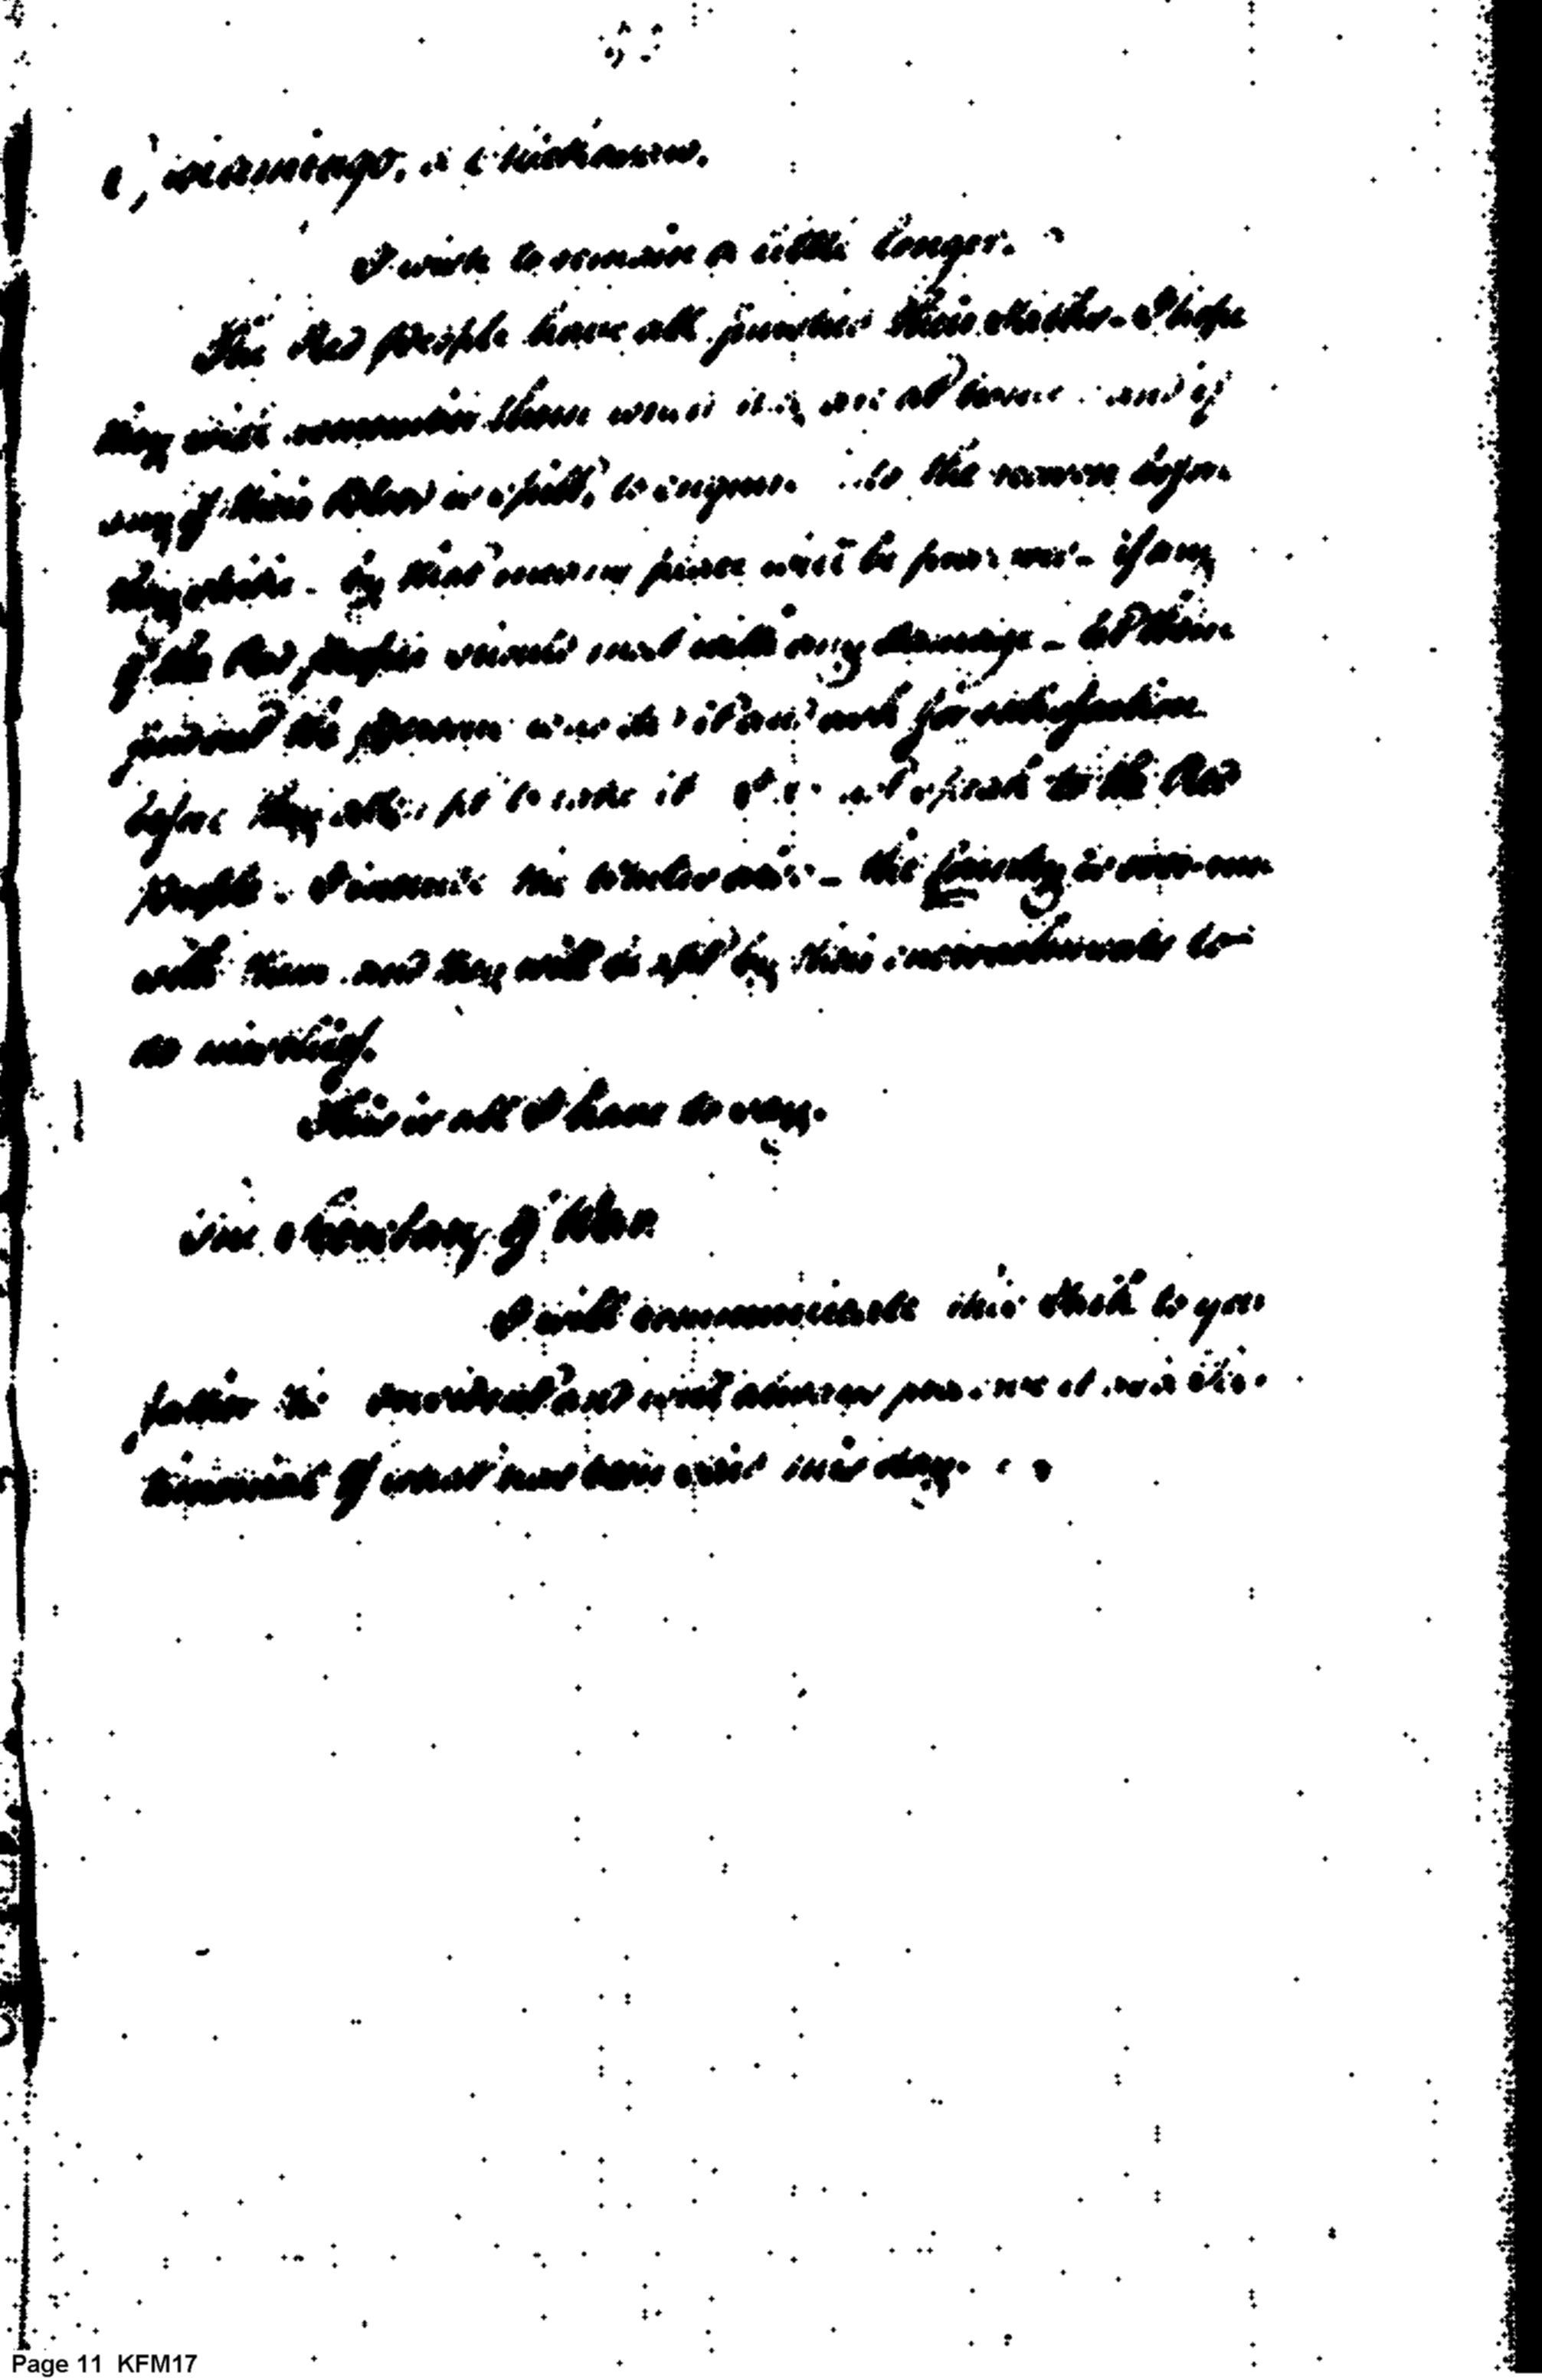 a Chickasaw.
I wish to remain a little longer.
The Red people have all finished their talks. I hope
they will remember them when they are at home and if
any of their blood is spilt, to inquire into the reason before
they strike. By that means peace will be preserved. if any
of the Red people should meet with any damage - let them
find out the person who did it and ask for satisfaction
before they attempt to take it I do not speak to the Red
people. I include the whites also - the Country is over-run
with them and they will be apt by their encroachments to
do mischief.
This is all I have to say.
The Secretary of War.
I will communicate this talk to your
father the President and will
of what has been said this day.
Page 11 KFM17